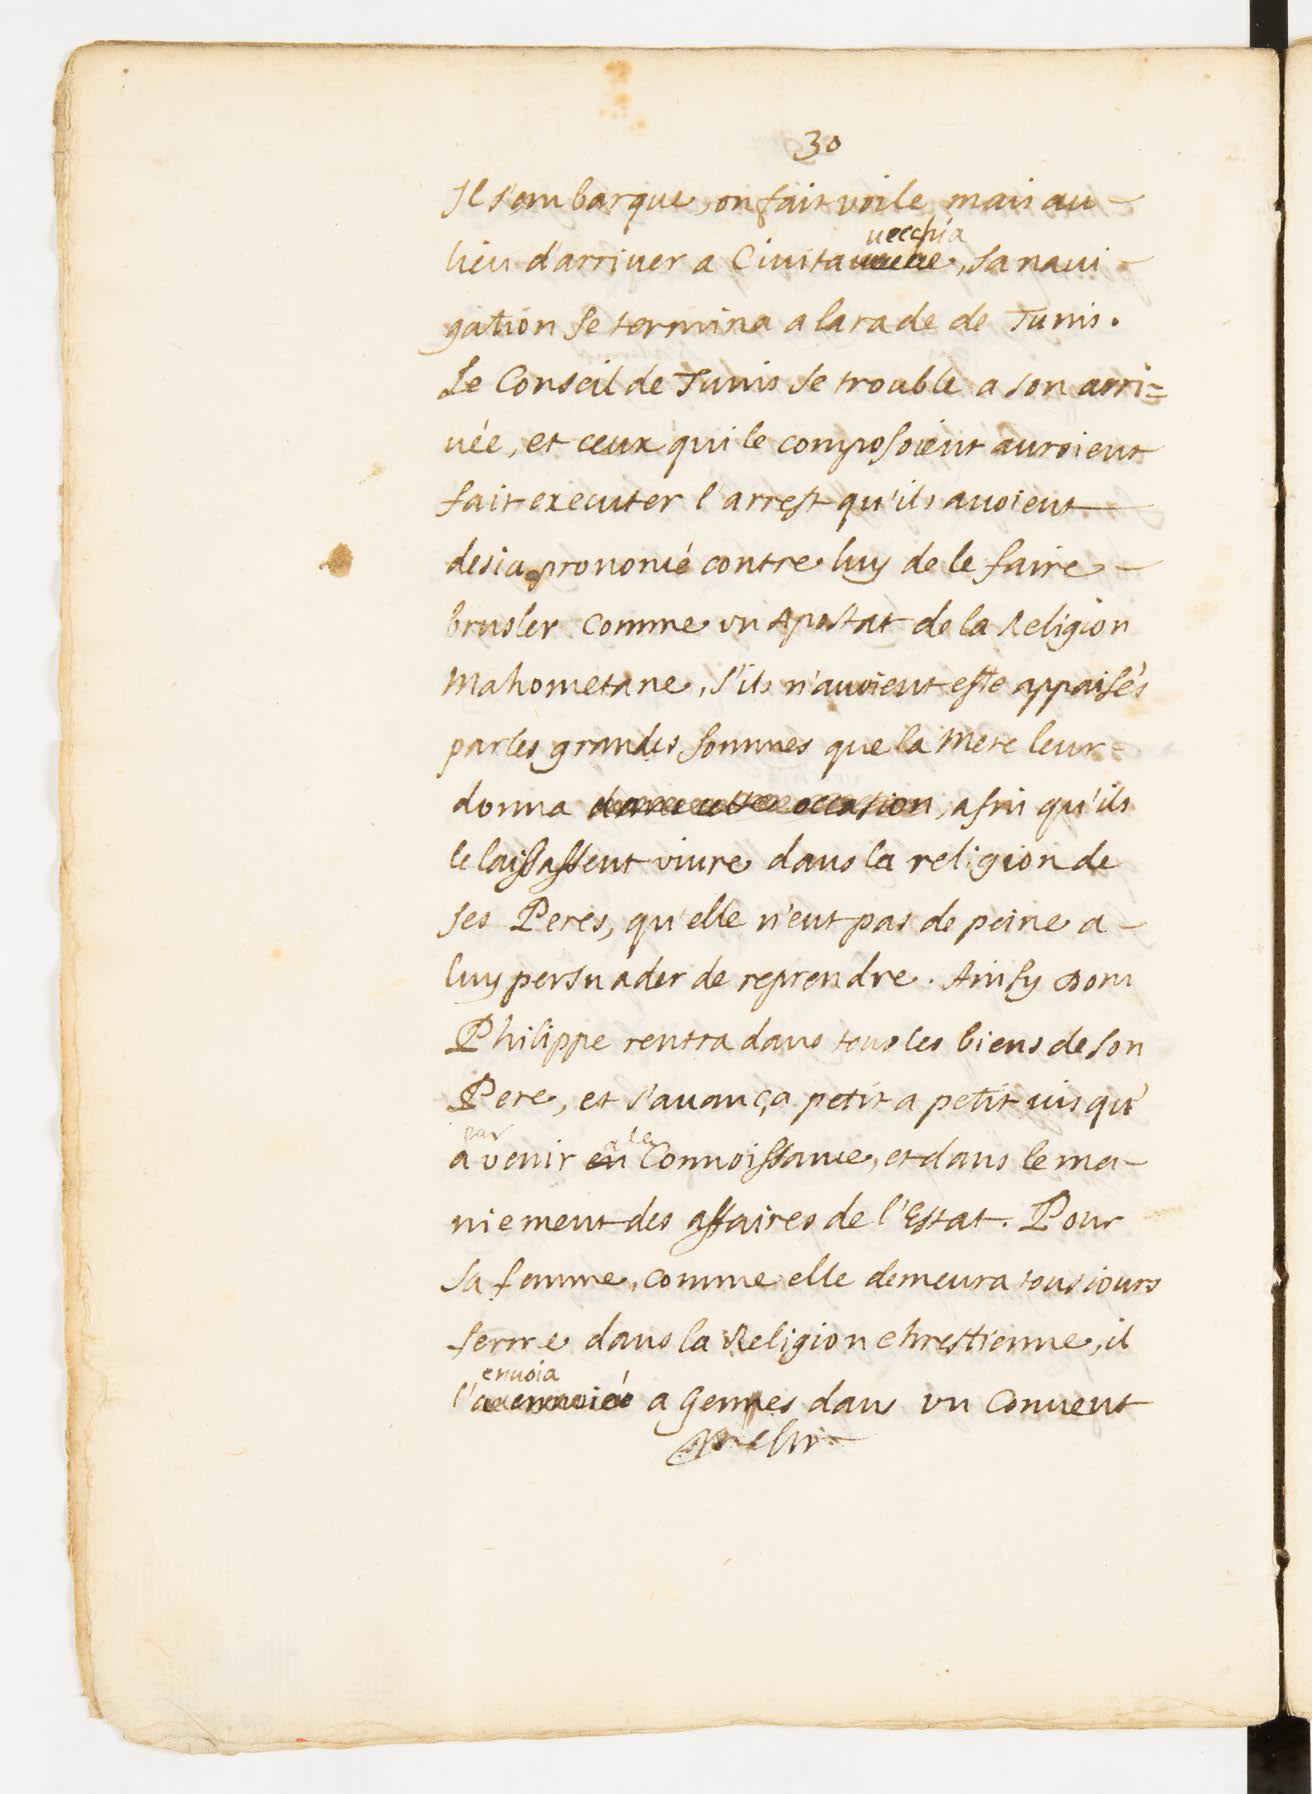 30
Il s'embarque, on fait voile, mais au -
lieu d'arriuer a Ciuita vecchia, sa naui -
gation se termina a la rade de Tunis.
Le Conseil de Tunis se trouble a son arri=
uée, et ceux qui le composoient auroient
fait executer l'arrest qu'ils auoient
desia prononcé contre luy de le faire -
brusler comme vn Apostat de la Religion
Mahometane, s'ils n'auoient esté appaisés
par les grandes sommes que la Mere leur
donna dans cette occasion, afin qu'ils
le laissassent viure dans la religion de
ses Peres, qu'elle n'eut pas de peine a -
luy persuader de reprendre. Ainsy Dom
Philippe rentra dans tous les biens de son
Pere, et s'auança petit a petit iusqu'
a par venir a la Connoissance, et dans le ma -
niement des affaires de l'Estat. Pour
sa femme, comme elle demeura tousiours
ferme dans la Religion chrestienne, il
l'enuoia a Gennes dans vn Conuent